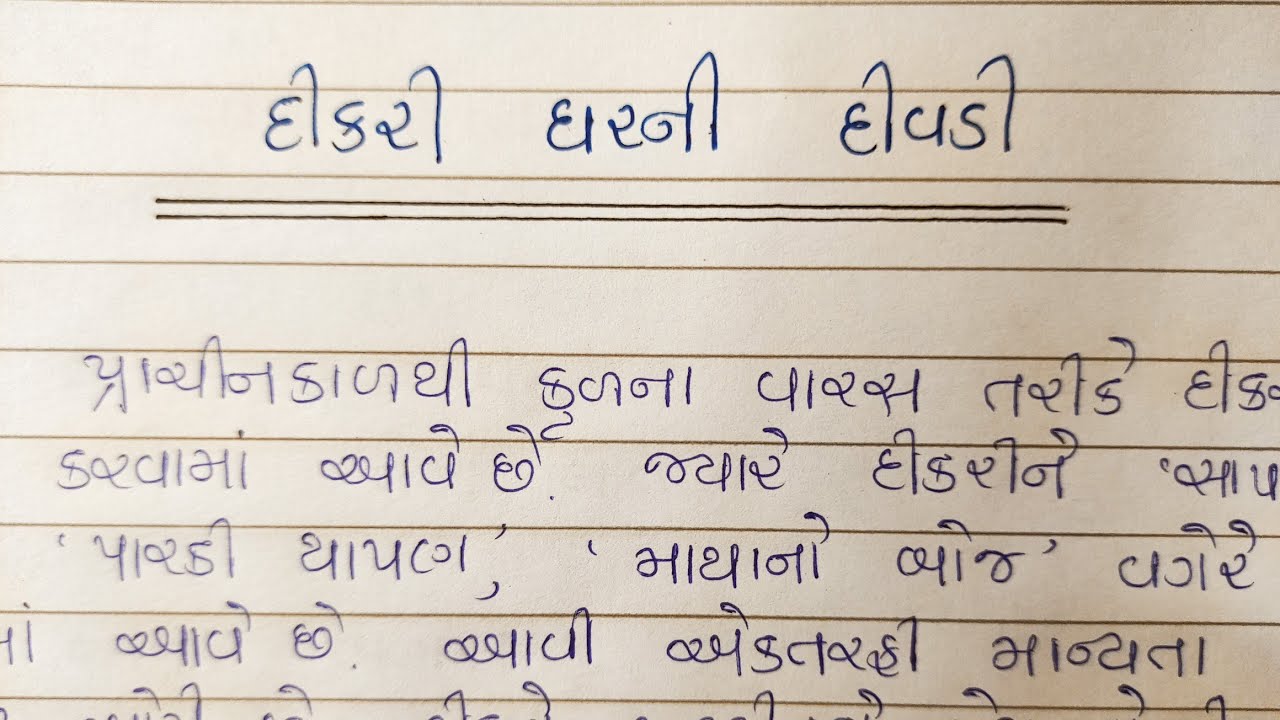 દીકરી ઘરની દીવડી
પ્રાચીનકાળથી કુળના વારસ તરીકે
કરવામાં આવે છે. જ્યારે દીકરીને
'પારકી થાપણ', 'માથાનો બોજ' વગેરે
આવે છે. આવી એકતરફી માન્યતા